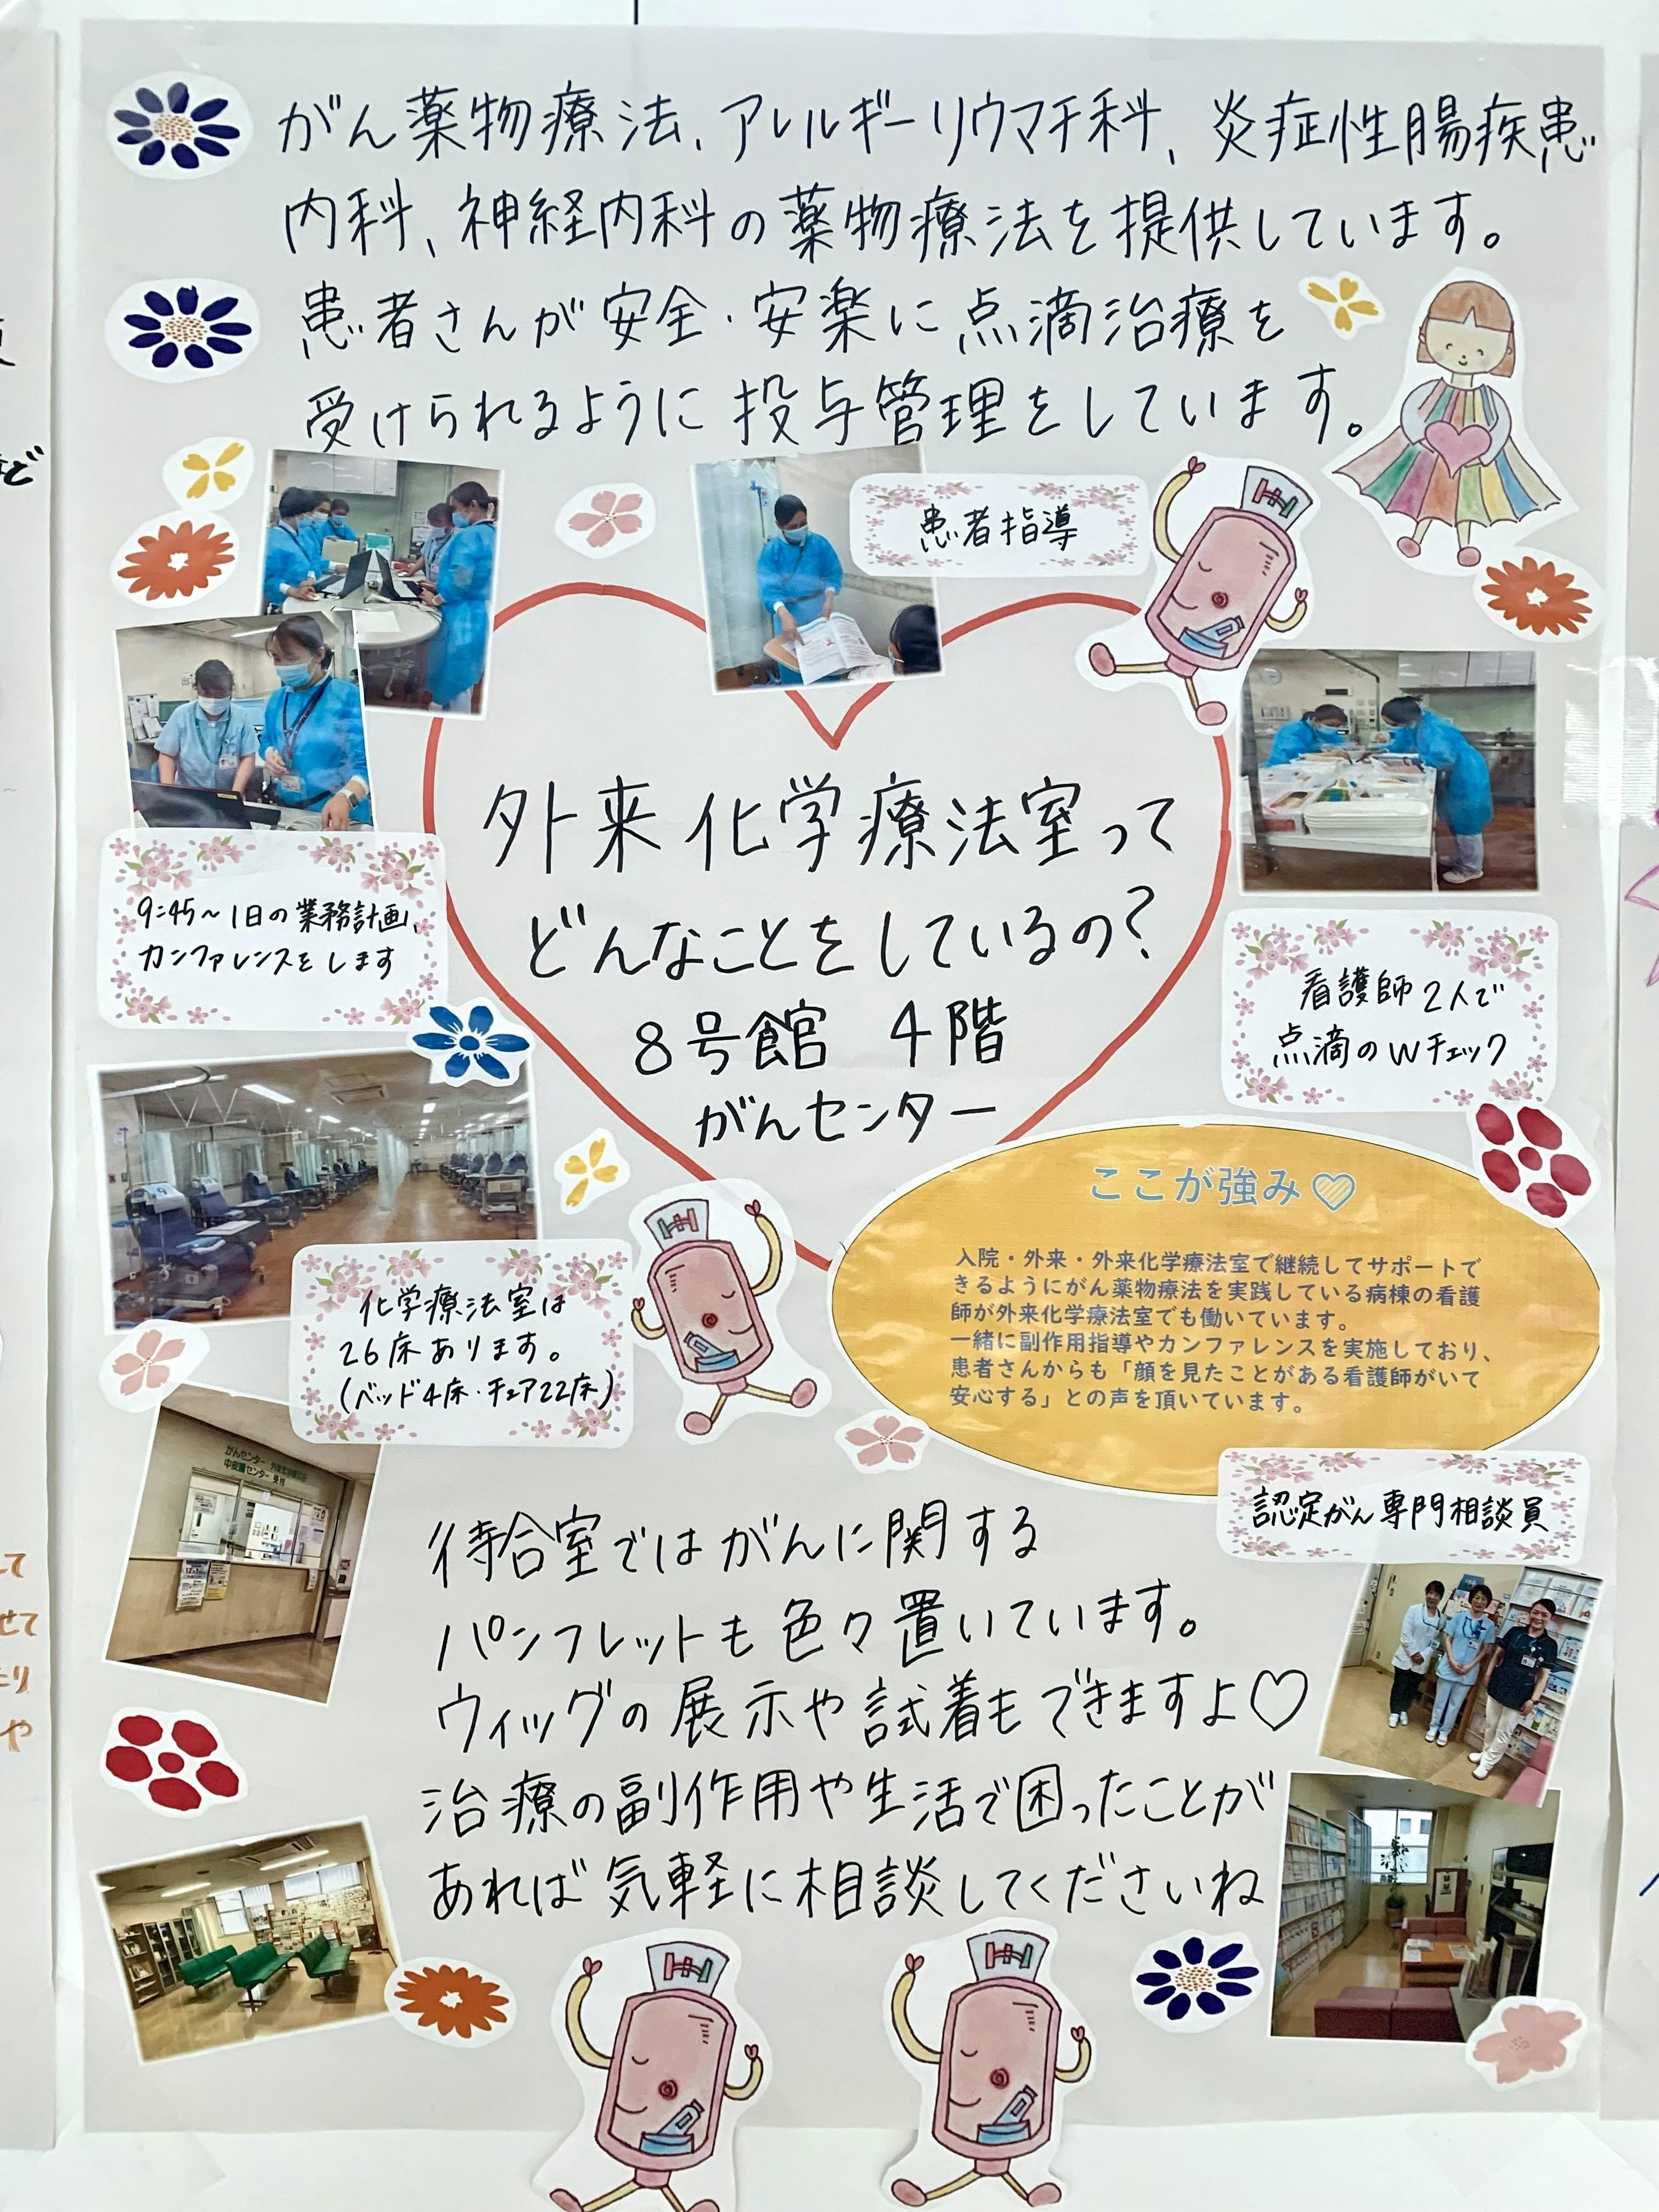 がん薬物療法、アレルギーリウマチ科、炎症性腸疾患
内科、神経内科の薬物療法を提供しています。
患者さんが安全・安楽に点滴治療を
受けられるように投与管理をしています。
患者指導
外来化学療法室って
どんなことをしているの?
8号館 4階
がんセンター
9:45~1日の業務計画、
カンファレンスをします
看護師2人で
点滴のWチェック
化学療法室は
26床あります。
(ベッド4床・チェア22床)
ここが強み♡
入院・外来・外来化学療法室で継続してサポートで
きるようにがん薬物療法を実践している病棟の看護
師が外来化学療法室でも働いています。
一緒に副作用指導やカンファレンスを実施しており、
患者さんからも「顔を見たことがある看護師がいて
安心する」との声を頂いています。
認定がん専門相談員
がんセンター 外来化学療法室
中央採血センター 受付
待合室ではがんに関する
パンフレットも色々置いています。
ウィッグの展示や試着もできますよ♡
治療の副作用や生活で困ったことが
あれば気軽に相談してくださいね